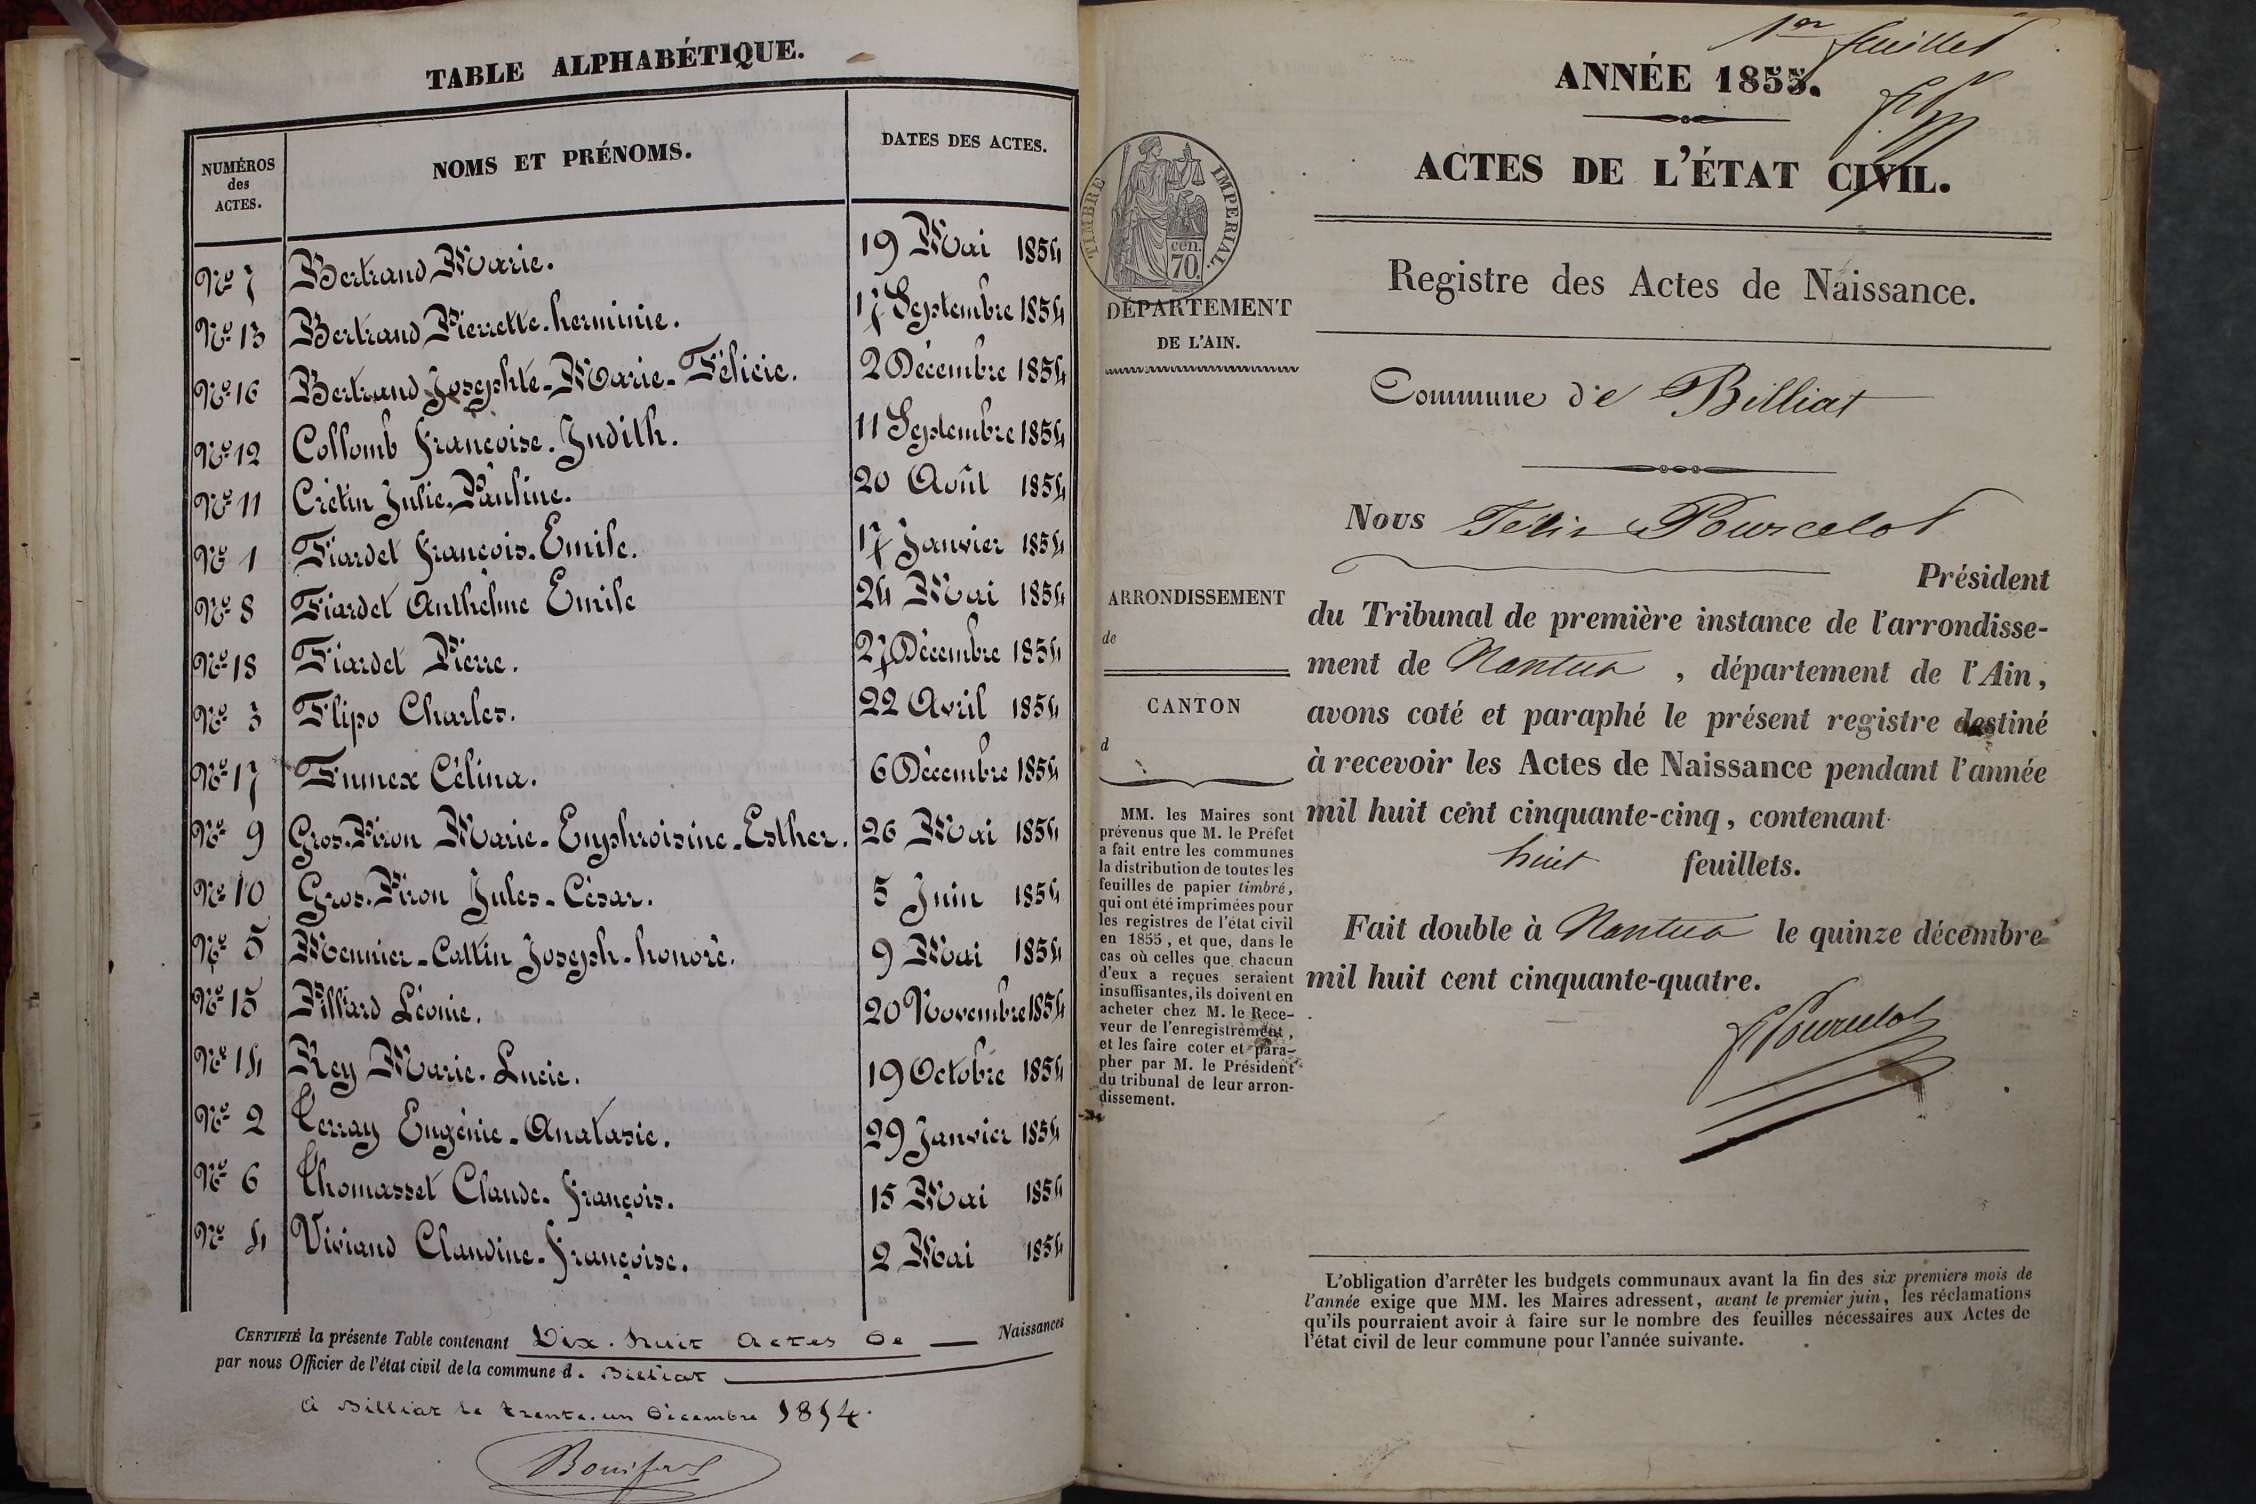 TABLE ALPHABÉTIQUE.
NUMÉROS des ACTES. NOMS ET PRÉNOMS. DATES DES ACTES.
No 7 Bertrand Marie. 19 Mai 1854
No 13 Bertrand Pierrette-herminie. 17 Septembre 1854
No 16 Bertrand Josephte-Marie-Félicie. 2 Décembre 1854
No 12 Collomb françoise-Judith. 11 Septembre 1854
No 11 Crétin Julie-Pauline. 20 Août 1854
No 1 Fiardet françois-Emile. 17 Janvier 1854
No 8 Fiardet Anthelme Emile 24 Mai 1854
No 18 Fiardet Pierre. 27 Décembre 1854
No 3 Flipo Charles. 22 Avril 1854
No 17 Fumex Célina. 6 Décembre 1854
No 9 Gros-Piron Marie-Euphroisine-Esther. 26 Mai 1854
No 10 Gros-Piron Jules-César. 5 Juin 1854
No 5 Mennier-Cattin Joseph-honoré. 9 Mai 1854
No 15 Pillard Léonie. 20 Novembre 1854
No 14 Rey Marie-Lucie. 19 Octobre 1854
No 2 Terray Eugénie-Anatasie. 29 Janvier 1854
No 6 Thomasset Claude-françois. 15 Mai 1854
No 4 Viviand Claudine-françoise. 2 Mai 1854
CERTIFIÉ la présente Table contenant Dix-huit actes de Naissances
par nous Officier de l'état civil de la commune d. Billiat
à Billiat le trente-un Décembre 1854.
1er feuillet
ANNÉE 1855.
ACTES DE L'ÉTAT CIVIL.
TIMBRE IMPERIAL.
cen.
70.
DÉPARTEMENT
DE L'AIN.
Registre des Actes de Naissance.
Commune de Billiat
Nous Félix Pourcelot
Président
du Tribunal de première instance de l'arrondisse-
ment de Nantua, département de l'Ain,
avons coté et paraphé le présent registre destiné
à recevoir les Actes de Naissance pendant l'année
mil huit cent cinquante-cinq, contenant
huit feuillets.
Fait double à Nantua le quinze décembre
mil huit cent cinquante-quatre.
F Pourcelot
ARRONDISSEMENT
de
CANTON
d
MM. les Maires sont
prévenus que M. le Préfet
a fait entre les communes
la distribution de toutes les
feuilles de papier timbré,
qui ont été imprimées pour
les registres de l'état civil
en 1855, et que, dans le
cas où celles que chacun
d'eux a reçues seraient
insuffisantes, ils doivent en
acheter chez M. le Rece-
veur de l'enregistrement,
et les faire coter et para-
pher par M. le Président
du tribunal de leur arron-
dissement.
L'obligation d'arrêter les budgets communaux avant la fin des six premiers mois de
l'année exige que MM. les Maires adressent, avant le premier juin, les réclamations
qu'ils pourraient avoir à faire sur le nombre des feuilles nécessaires aux Actes de
l'état civil de leur commune pour l'année suivante.